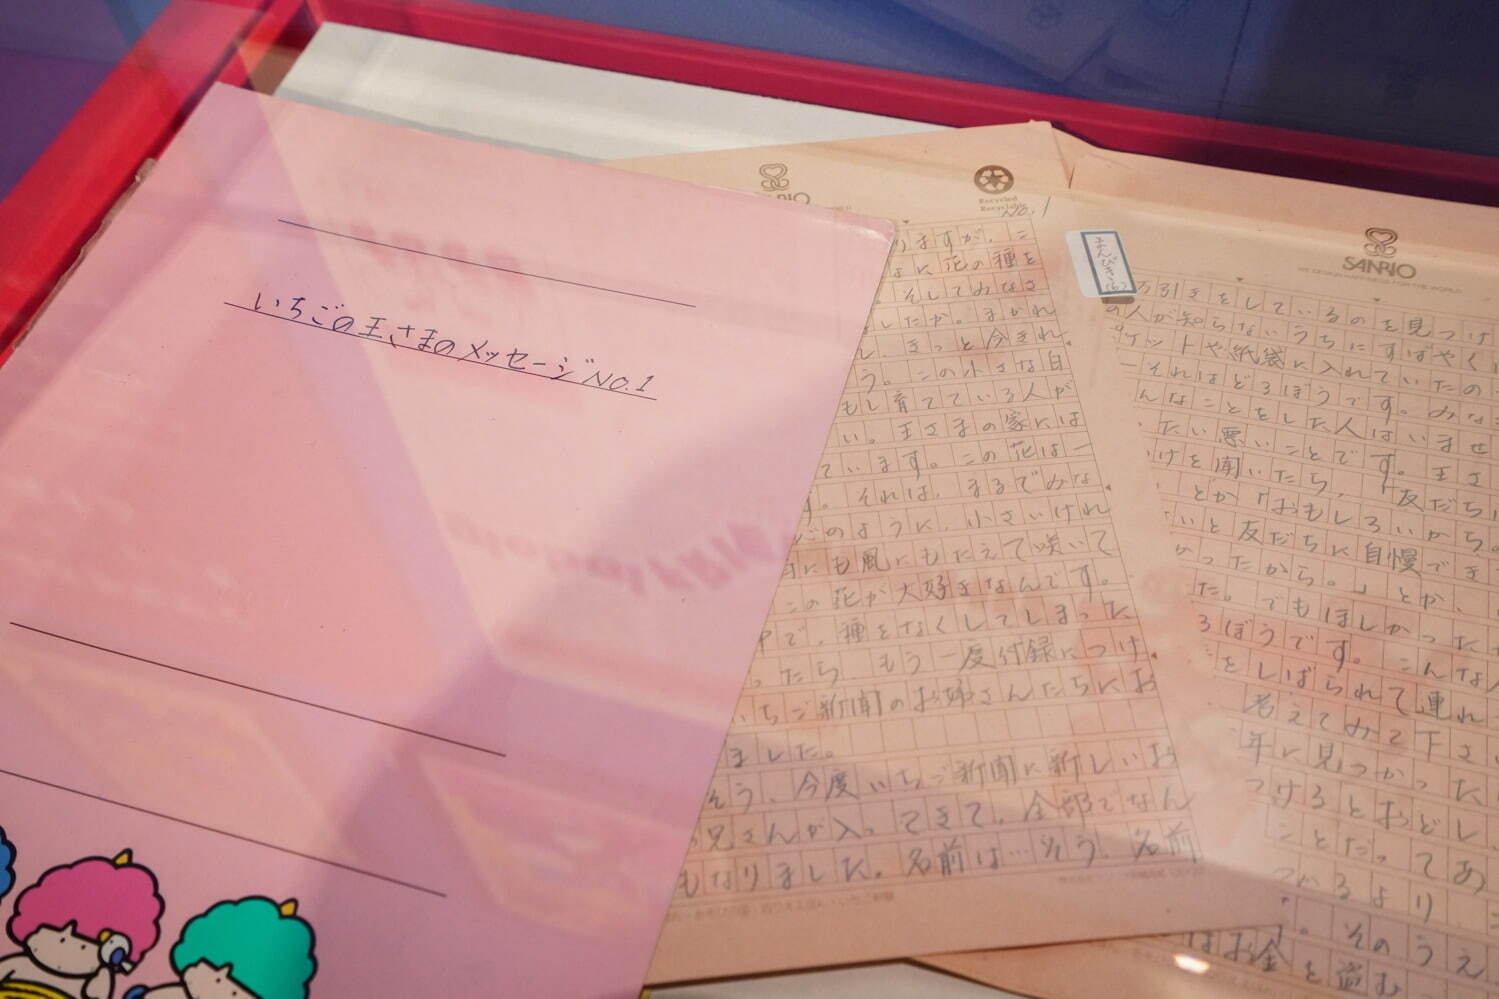 いちごの王さまのメッセージ No.1
SANRIO
Recycled
Recyclable
No.1
りますが、こ
花の種を
そしてみなさ
したか。まかれ
きっと今きれ
う。この小さな自
もし育てている人が
い。王さまの家には
ています。この花は一
す。それは、まるでみな
ごのように、小さいけれ
にも風にもたえて咲いて
この花が大好きなんです。
中で、種をなくしてしまった
ったら、もう一度付録につけ
いちご新聞のお姉さんたちにお
ました。
そう、今度いちご新聞に新しいお
お兄さんが入ってきて、全部でなん
もなりました。名前は…そう、名前
まんびき(6)
SANRIO
万引きをしているのを見つけ
人が知らないうちにすばやく
ケットや紙袋に入れていたの
それはどろぼうです。みな
んなことをした人はいませ
たい悪いことです。王さ
けを聞いたら、「友だち
とか「おもしろいから。
いと友だちに自慢でき
かったから。」とか、
た。でもほしかった
ろぼうです。こんな
をしばられて連れ
考えてみて下さ
年に見つかった
つけるとおどし
ことだってあ
るより
。そのうえ
はお金を盗む